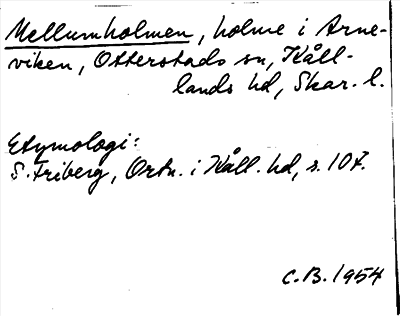 Mellumholmen, holme i Arne-
viken, Otterstads sn, Kåll-
lands hd, Skar. l.
Etymologi:
S. Friberg, Ortn. i Kåll. hd, s. 107.
C.B. 1954